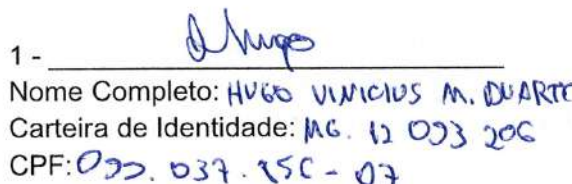 1 - Hugo
Nome Completo: HUGO VINICIUS M. DUARTE
Carteira de Identidade: MG. 12 093 206
CPF: 037. - 07